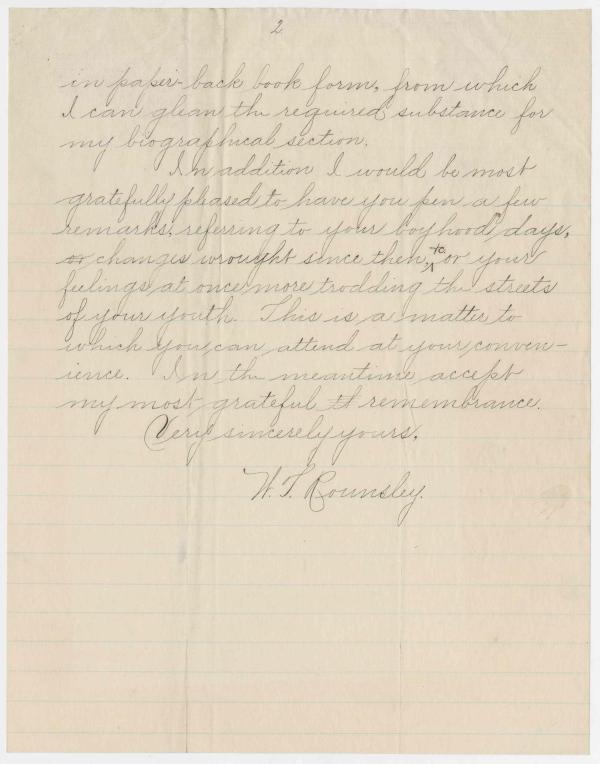 2
in paper-back book form, from which
I can glean the required substance for
my biographical section.
In addition I would be most
gratefully pleased to have you pen a few
remarks, referring to your boyhood days,
or changes wrought since then, etc. or your
feelings at once more trodding the streets
of your youth. This is a matter to
which you can attend at your conven-
ience. In the meantime accept
my most grateful th remembrance.
Very sincerely yours,
W. T. Rounsley.